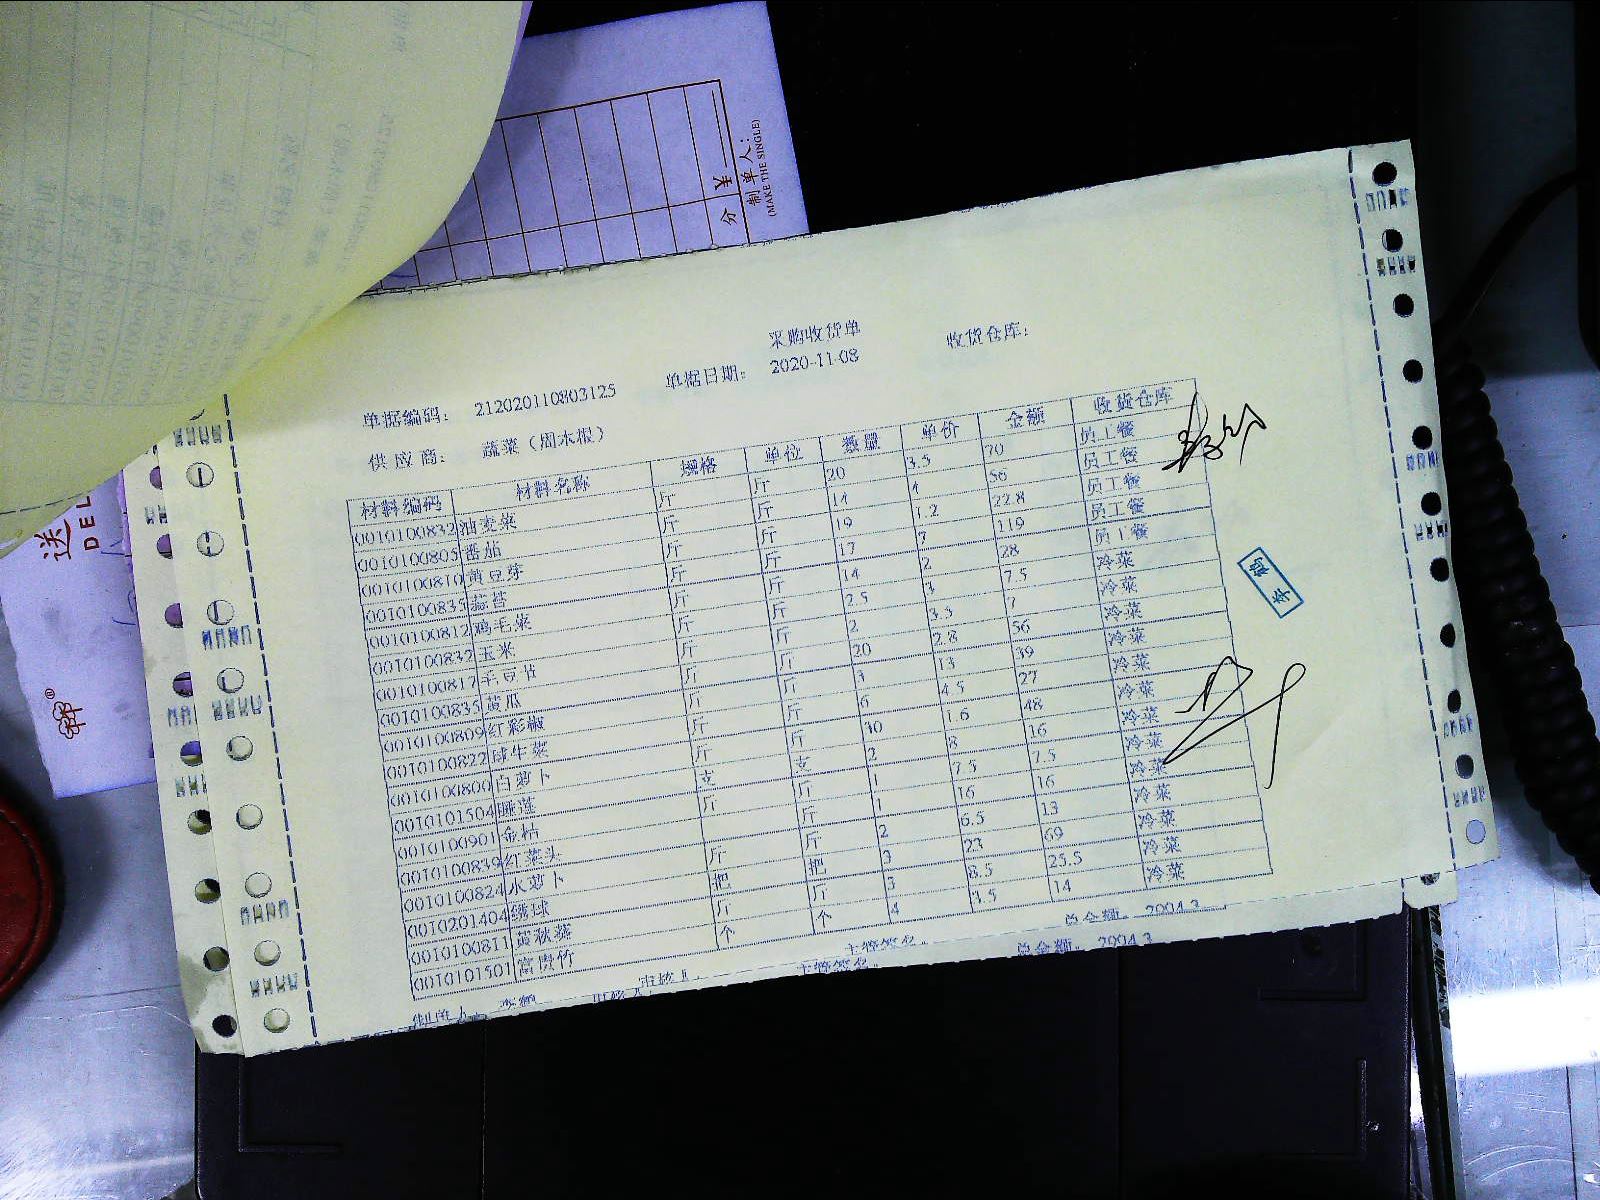 采购收货单
单据编码: 212020110803125 单据日期: 2020-11-08 收货仓库:
供应商: 蔬菜（周木根）
材料编码 材料名称 规格 单位 数量 单价 金额 收货仓库
0010100832 油麦菜 斤 斤 20 3.5 70 员工餐
0010100805 番茄 斤 斤 14 4 56 员工餐
0010100810 黄豆芽 斤 斤 19 1.2 22.8 员工餐
0010100835 蒜苔 斤 斤 17 7 119 员工餐
0010100812 鸡毛菜 斤 斤 14 2 28 员工餐
0010100832 玉米 斤 斤 2.5 3 7.5 冷菜
0010100817 毛豆节 斤 斤 2 3.5 7 冷菜
0010100835 黄瓜 斤 斤 20 2.8 56 冷菜
0010100809 红彩椒 斤 斤 3 13 39 冷菜
0010100822 球生菜 斤 斤 6 4.5 27 冷菜
0010100800 白萝卜 斤 斤 30 1.6 48 冷菜
0010101504 睡莲 支 支 2 8 16 冷菜
0010100901 金桔 斤 斤 1 7.5 7.5 冷菜
0010100839 红菜头 斤 1 16 16 冷菜
0010100824 水萝卜 斤 斤 2 6.5 13 冷菜
0010201404 绣球 把 把 3 23 69 冷菜
0010100811 黄秋葵 斤 斤 3 8.5 25.5 冷菜
0010101501 富贵竹 个 个 4 3.5 14 冷菜
制单人 审核人: 主管签名: 总金额: 2004.3
主管签名: 总金额: 2004.3
分 ¥
制单人:
(MAKE THE SINGLE)
送
DEL